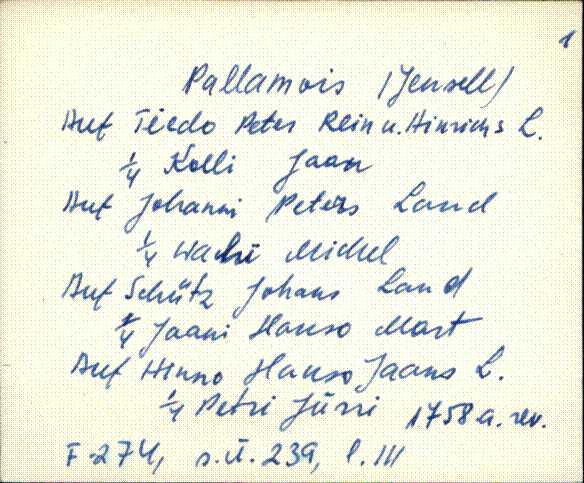 1
Pallamois (Jensell)
Auf Tiedo Peter Rein u. Hinrichs L.
1/4 Kolli Jaan
Auf Johanni Peters Land
1/4 Wachi Michel
Auf Schütz Johans Land
1/4 Jaani Hanso Mart
Auf Hinno Hanso Jaans L.
1/4 Petri Jürri 1758 a. rev.
F. 274, s.ü. 239, l. 111